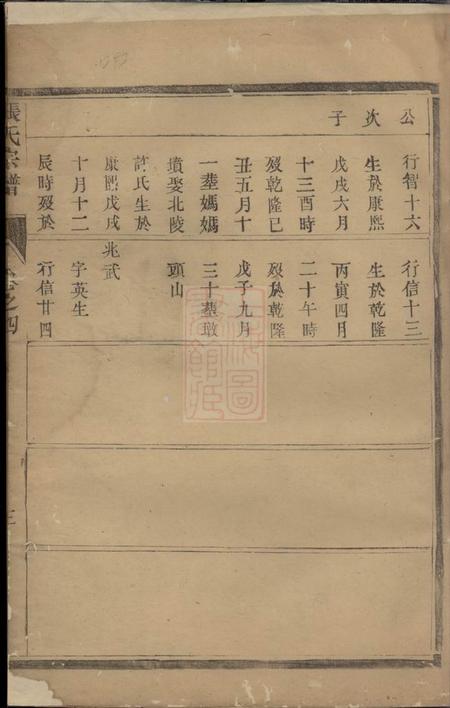 公
次
子
行智十六
生於康熙
戊戌六月
十三酉時
歿乾隆己
丑五月十
一塟媽媽
墳娶北陵
許氏生於
康熙戊戌
十月十二
辰時歿於
行信十三
生於乾隆
丙寅四月
二十午時
歿於乾隆
戊子九月
三十塟墩
頭山
兆武
字英生
行信廿四
張氏宗譜
卷之四
三